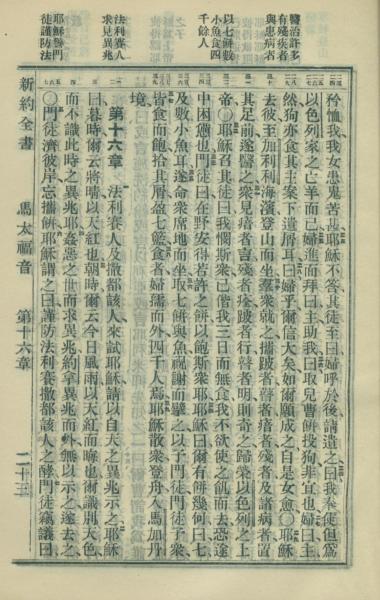 醫治許多
有殘疾者
與患病者
以七餅數
小魚食四
千餘人
法利賽人
求見異兆
耶穌警門
徒謹防法
矜恤我我女患鬼苦甚耶穌不答其徒至曰婦呼於後請遣之曰我奉使但為
以色列家之亡羊而已婦進而拜曰主助我曰取兒曹餅投狗非宜也婦曰主
然狗亦食其主案下遺屑耳曰婦乎爾信大矣如爾願成之自是女愈〇耶穌
去彼至加利利海濱登山而坐羣衆就之攜跛者瞽者瘖者殘者及諸病者置
其足前遂醫之衆見瘖者言殘者痊跛者行瞽者明則奇之歸榮以色列之上
帝〇耶穌召其徒曰我憫斯衆已偕我三日而無食我不欲使之飢而去恐途
中困憊也門徒曰在野安得若許之餅以飽斯衆耶耶穌曰爾有餅幾何曰七
及數小魚耳遂命衆席地而坐取七餅與魚祝謝而擘之以予門徒門徒予衆
皆食而飽拾其屑盈七籃食者婦孺而外四千人焉耶穌散衆登舟入馬加丹
境
第十六章 法利賽人及撒都該人來試耶穌請以自天之異兆示之耶穌
曰暮時爾云將晴以天紅也朝時爾云今日風雨以天紅而晦也爾識別天色
而不識此時之異兆耶姦惡之世而求異兆約拿異兆而外無以示之遂去之
〇門徒濟彼岸忘攜餅耶穌謂之曰謹防法利賽撒都該人之酵門徒竊議曰
新約全書 馬太福音 第十六章 二十三